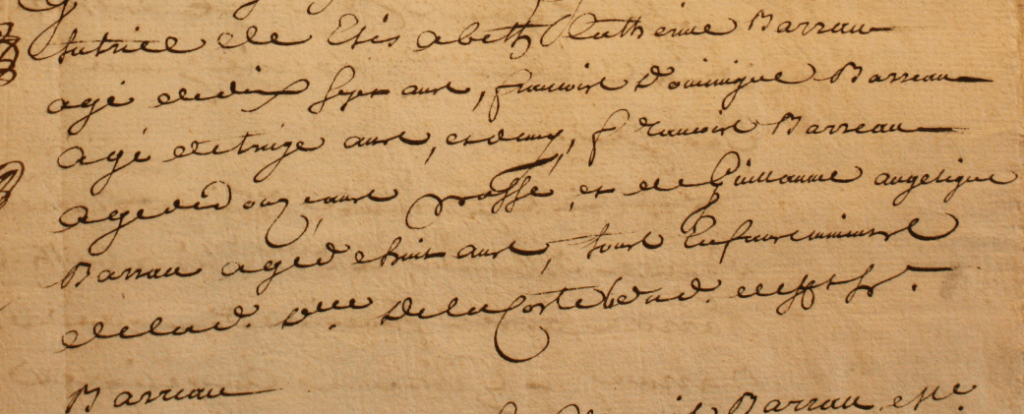 tutrice de Elisabeth Catherine Barrau
agé de dix sept ans, francois Dominique Barreau
agé de treize ans, et demy, francois Barreau
agé de douze ans passé, et de Guillaume angelique
Barrau agé de huit ans, tous Enfans mineurs
de lad. d.lle Delacoste et dud. deff.t sr.
Barreau
Barrau